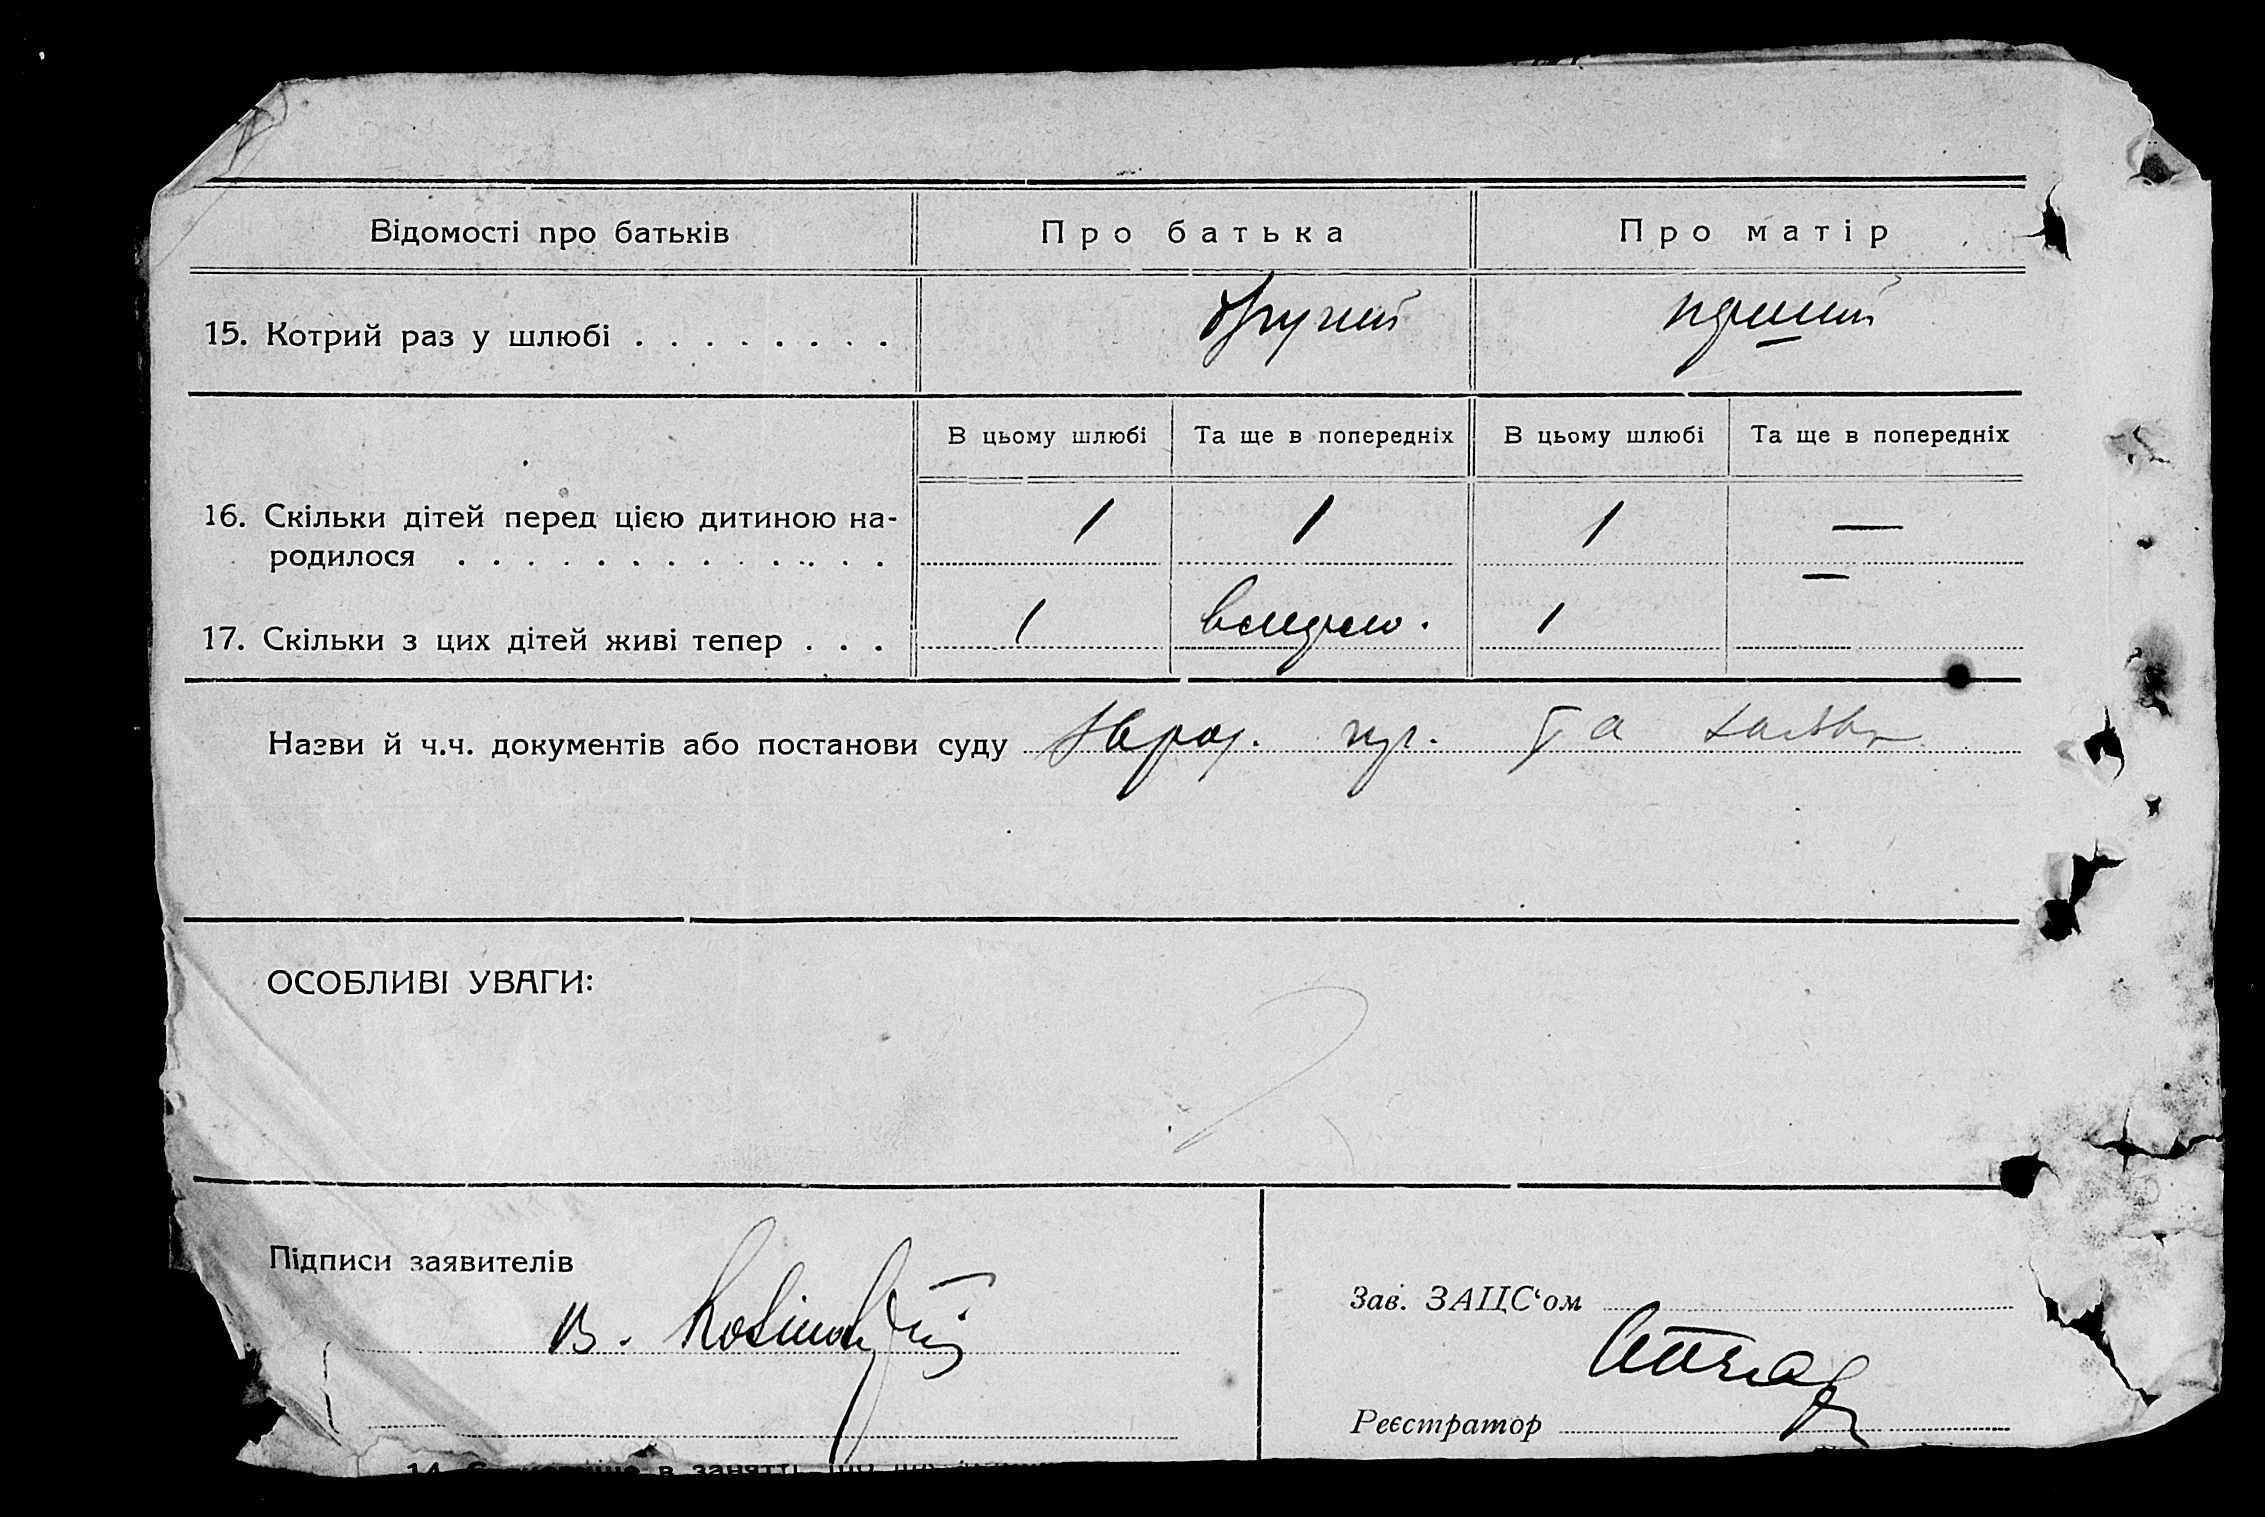 Відомості про батьків Про батька Про матір
15. Котрий раз у шлюбі . . . . . . . . другий перший
В цьому шлюбі Та ще в попередніх В цьому шлюбі Та ще в попередніх
16. Скільки дітей перед цією дитиною на-
родилося . . . . . . . . . . . . . 1 1 1 —
17. Скільки з цих дітей живі тепер . . . 1 вмерло. 1 —
Назви й ч.ч. документів або постанови суду та
ОСОБЛИВІ УВАГИ:
Підписи заявителів
В.
Зав. ЗАЦС‘ом
Реєстратор
14. в занятті, що